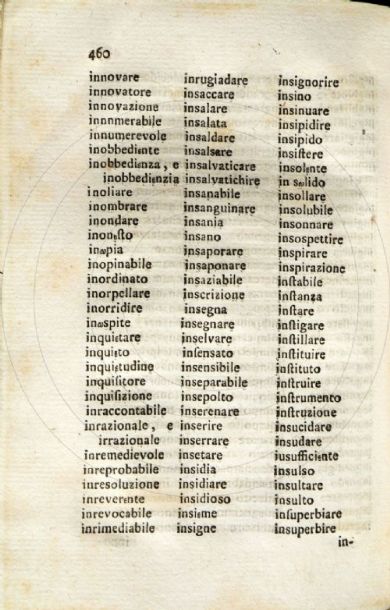 460
innovare
innovatore
innovazione
innnmerabile
innumerevole
inobbediente
inobbedienza, e
inobbedienzia
inoliare
inombrare
inondare
inonesto
inωpia
inopinabile
inordinato
inorpellare
inorridire
inωspite
inquietare
inquieto
inquietudine
inquiſitore
inquiſizione
inraccontabile
inrazionale, e
irrazionale
inremedievole
inreprobabile
inresoluzione
inreverente
inrevocabile
inrimediabile
inrugiadare
insaccare
insalare
insalata
insaldare
insalsare
insalvaticare
insalvatichire
insanabile
insanguinare
insania
insano
insaporare
insaponare
insaziabile
inscrizione
insegna
insegnare
inselvare
inſensato
insensibile
inseparabile
insepolto
inserenare
inserire
inserrare
insetare
insidia
insidiare
insidioso
insieme
insigne
insignorire
insino
insinuare
insipidire
insipido
insiſtere
insolente
in sωlido
insollare
insolubile
insonnare
insospettire
inspirare
inspirazione
inſtabile
inſtanza
inſtare
inſtigare
inſtillare
inſtituire
inſtituto
inſtruire
inſtrumento
inſtruzione
insucidare
insudare
iusufficiente
insulso
insultare
insulto
inſuperbiare
insuperbire
in-